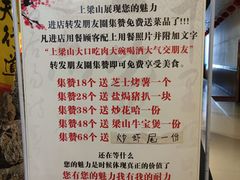 上梁山展现您的魅力
进店转发朋友圈集赞免费送菜品了!!!
凡进店用餐顾客配上用餐照片并附加文字
“上梁山大口吃肉大碗喝酒大气交朋友”
转发朋友圈集赞即可免费享受美食。
集赞18个 送 芝士烤薯一个
集赞28个 送 盐焗猪扒一块
集赞38个 送 炒花哈一份
集赞48个 送 梁山牛宝煲一份
集赞68个 送 炒虾尾一份
还在等什么
您的魅力是时候体现真正的价值了
您有您的魅力我有我的耐力